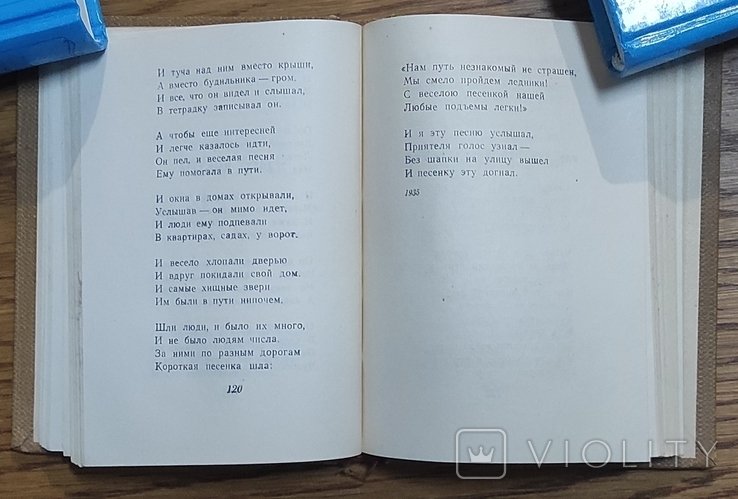 И туча над ним вместо крыши,
А вместо будильника — гром.
И все, что он видел и слышал,
В тетрадку записывал он.
А чтобы еще интересней
И легче казалось идти,
Он пел, и веселая песня
Ему помогала в пути.
И окна в домах открывали,
Услышав — он мимо идет,
И люди ему подпевали
В квартирах, садах, у ворот.
И весело хлопали дверью
И вдруг покидали свой дом.
И самые хищные звери
Им были в пути нипочем.
Шли люди, и было их много,
И не было людям числа.
За ними по разным дорогам
Короткая песенка шла:
120
«Нам путь незнакомый не страшен,
Мы смело пройдем ледники!
С веселою песенкой нашей
Любые подъемы легки!»
И я эту песню услышал,
Приятеля голос узнал —
Без шапки на улицу вышел
И песенку эту догнал.
1935
VIOLITY